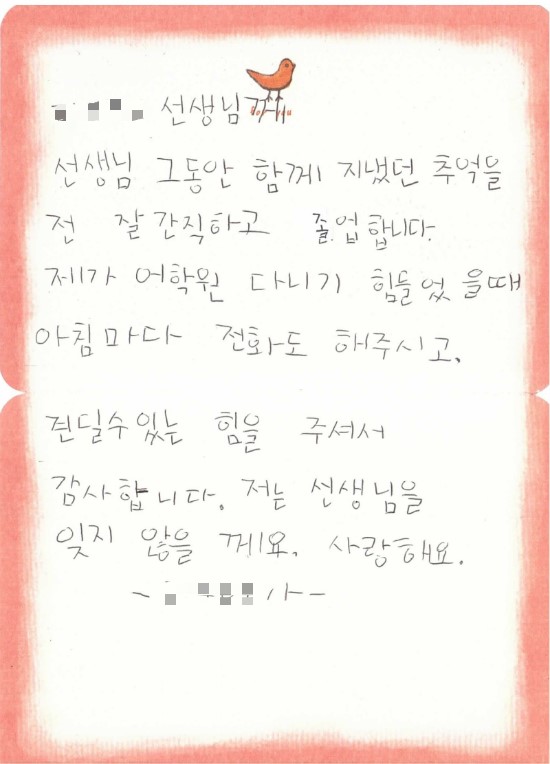 선생님께
선생님 그동안 함께 지냈던 추억을
전 잘 간직하고 졸업합니다.
제가 어학원 다니기 힘들었 을때
아침마다 전화도 해주시고,
견딜수있는 힘을 주셔서
감사합니다. 저는 선생님을
잊지 않을 께요. 사랑해요.